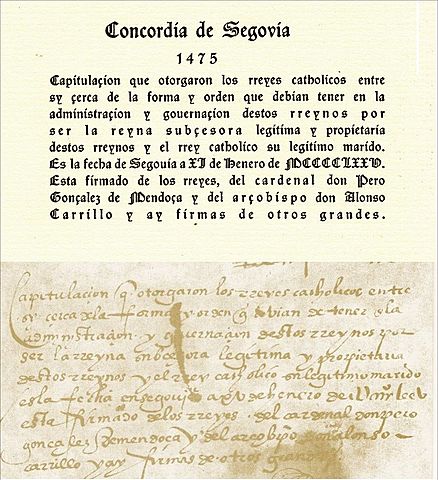 Concordia de Segovia
1475
Capitulaçion que otorgaron los rreyes catholicos entre
sy çerca de la forma y orden que debian tener en la
administraçion y governaçion destos rreynos por
ser la reyna subçesora legitima y propietaria
destos rreynos y el rrey catholico su legitimo marido.
Es la fecha de Segouia a XI de Henero de MCCCCLXXV.
Esta firmado de los rreyes, del cardenal don Pero
Gonçalez de Mendoça y del arçobispo don Alonso
Carrillo y ay firmas de otros grandes.
Capitulacion q. otorgaron los rreyes catholicos entre
sy çerca de la forma y orden q. de tener en la
administraçion y governaçion destos rreynos por
ser la rreyna legitima y propietaria
destos rreynos y el rrey catholico su legitimo marido
es la fecha en segovia a de henero de
esta firmado de los rreyes del cardenal don pero
gonçalez de mendoça y del arçobispo don alonso
carrillo y ay firmas de otros grandes